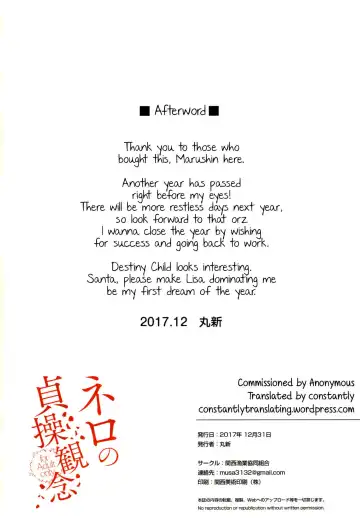 ■ Afterword ■
Thank you to those who
bought this, Marushin here.
Another year has passed
right before my eyes!
There will be more restless days next year,
so look forward to that orz
I wanna close the year by wishing
for success and going back to work.
Destiny Child looks interesting.
Santa, please make Lisa dominating me
be my first dream of the year.
2017.12 丸新
ネロの
貞操観念
Commissioned by Anonymous
Translated by constantly
constantlytranslating.wordpress.com
発行日：2017年 12月31日
発行者：丸新
サークル：関西漁業協同組合
連絡先：musa3132@gmail.com
印刷：関西美術印刷（株）
本誌の内容の転載、複製、Webへのアップロード等を一切禁じます。
No reproduction or republication without written permission.